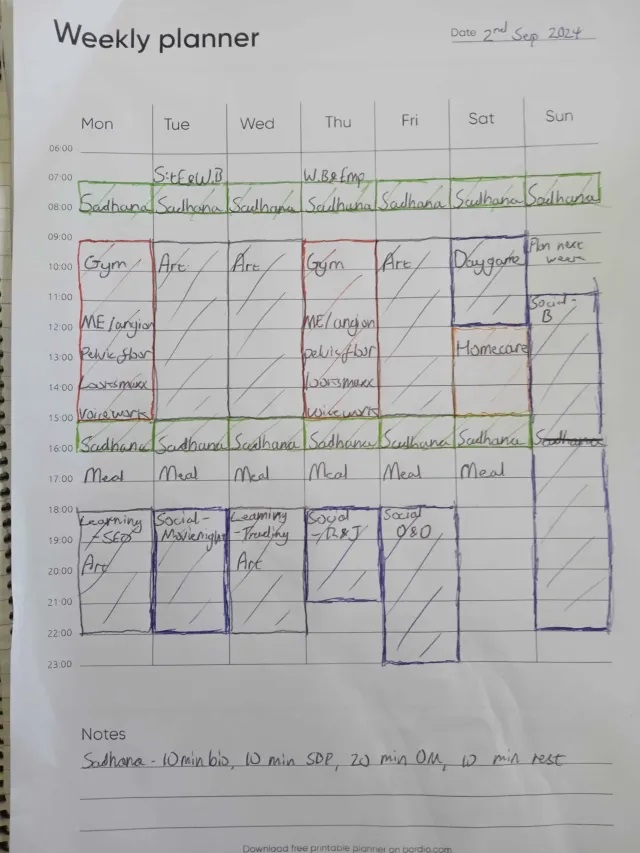 Weekly planner
Date 2nd Sep 2024
Mon Tue Wed Thu Fri Sat Sun
06:00
07:00 W.B & Emp
08:00 Sadhana Sadhana Sadhana Sadhana Sadhana Sadhana Sadhana
09:00 Plan next
10:00 Gym Art Art Gym Art Daygame week
11:00 Social-
B
12:00 ME/angion ME/angion
13:00 Pelvic floor Pelvic floor Homecare
14:00 Looksmaxx looksmaxx
15:00 Voice work voice work
16:00 Sadhana Sadhana Sadhana Sadhana Sadhana Sadhana Sadhana
17:00 Meal Meal Meal Meal Meal Meal
18:00 Learning Social- Learning Social Social
19:00 - SEO Movienight - Trading - R&J O&O
20:00 Art Art
21:00
22:00
23:00
Notes
Sadhana - 10 min bio, 10 min SDP, 20 min OM, 10 min rest
Download free printable planner on pardia.com